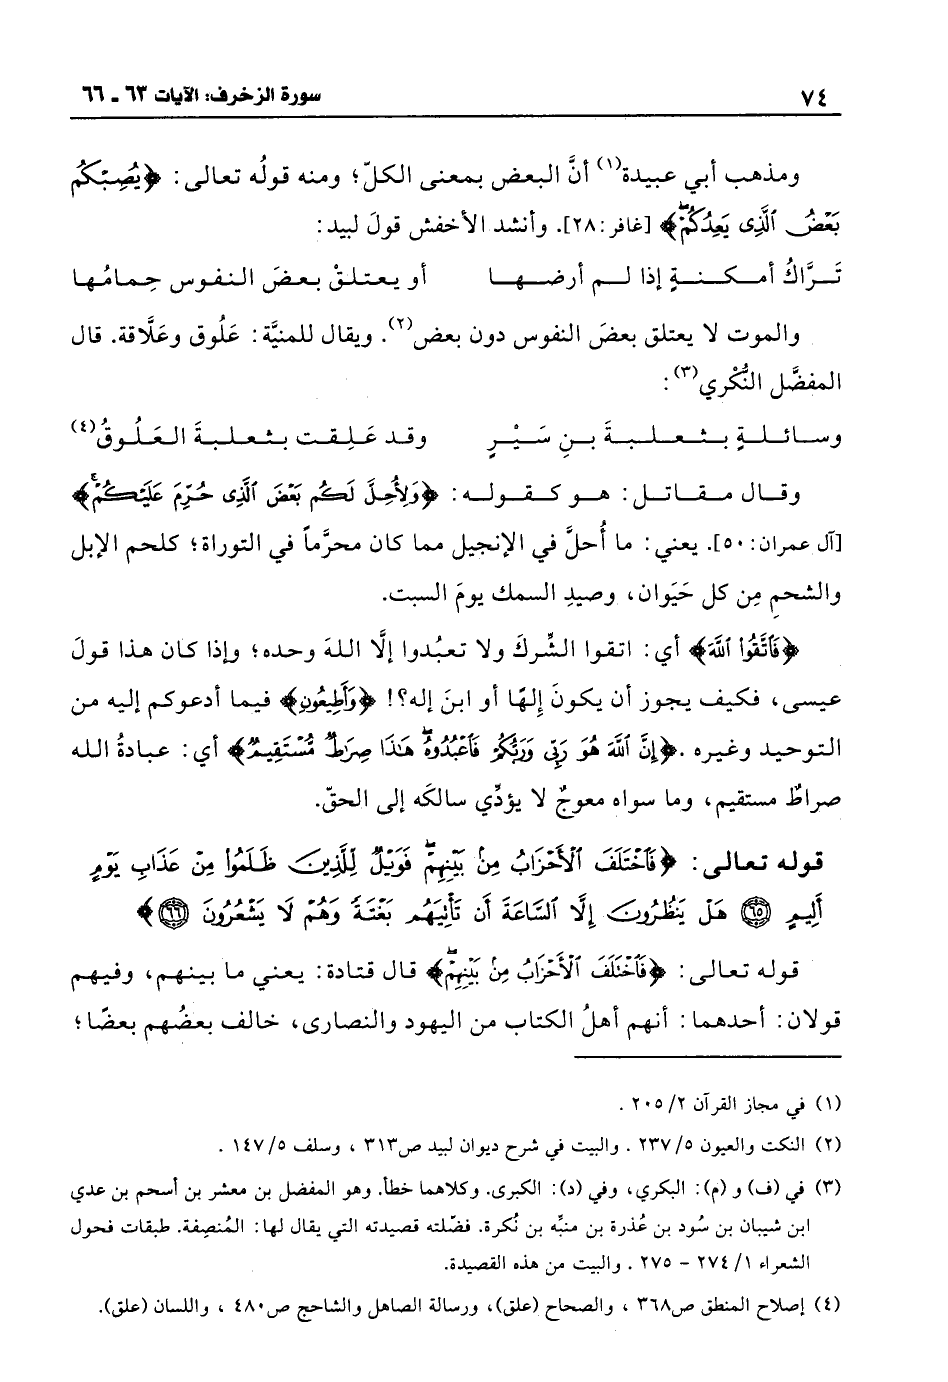 ٧٤ سورة الزخرف: الآيات ٦٣ ـ ٦٦
ومذهب أبي عبيدة(١) أنَّ البعض بمعنى الكلّ؛ ومنه قولُه تعالى: ﴿يُصِبْكُم
بَعْضُ ٱلَّذِى يَعِدُكُمْ﴾ [غافر:٢٨]. وأنشد الأخفش قولَ لبيد:
تَــرَّاكُ أمـكـنـةٍ إذا لـم أرضـهـا أو يـعـتـلـقْ بـعـضَ الـنـفـوس حِـمـامُـهـا
والموت لا يعتلق بعضَ النفوس دون بعض(٢). ويقال للمنيَّة: عَلُوق وعَلَّاقة. قال
المفضَّل النُّكْري(٣):
وسـائـلـةٍ بـثـعـلـبـةَ بـنِ سَـيْـرٍ وقـد عَـلِـقـت بـثـعـلـبـةَ الـعَـلُـوقُ(٤)
وقـال مـقـاتـل: هـو كـقـولـه: ﴿وَلِأُحِلَّ لَكُم بَعْضَ ٱلَّذِى حُرِّمَ عَلَيْكُمْ﴾
[آل عمران:٥٠]. يعني: ما أُحلَّ في الإنجيل مما كان محرَّماً في التوراة؛ كلحم الإبل
والشحمِ مِن كل حَيَوان، وصيدِ السمك يومَ السبت.
﴿فَٱتَّقُوا۟ ٱللَّهَ﴾ أي: اتقوا الشِّركَ ولا تعبُدوا إلَّا اللهَ وحده؛ وإذا كان هذا قولَ
عيسى، فكيف يجوز أن يكونَ إلهًا أو ابنَ إله؟! ﴿وَأَطِيعُونِ﴾ فيما أدعوكم إليه من
التوحيد وغيره .﴿إِنَّ ٱللَّهَ هُوَ رَبِّى وَرَبُّكُمْ فَٱعْبُدُوهُ هَٰذَا صِرَٰطٌ مُّسْتَقِيمٌ﴾ أي: عبادةُ الله
صراطٌ مستقيم، وما سواه معوجٌ لا يؤدِّي سالكَه إلى الحقّ.
قوله تعالى: ﴿فَٱخْتَلَفَ ٱلْأَحْزَابُ مِنۢ بَيْنِهِمْ فَوَيْلٌ لِّلَّذِينَ ظَلَمُوا۟ مِنْ عَذَابِ يَوْمٍ
أَلِيمٍ ۝٦٥ هَلْ يَنظُرُونَ إِلَّا ٱلسَّاعَةَ أَن تَأْتِيَهُم بَغْتَةً وَهُمْ لَا يَشْعُرُونَ ۝٦٦﴾
قوله تعالى: ﴿فَٱخْتَلَفَ ٱلْأَحْزَابُ مِنۢ بَيْنِهِمْ﴾ قال قتادة: يعني ما بينهم، وفيهم
قولان: أحدهما: أنهم أهلُ الكتاب من اليهود والنصارى، خالف بعضُهم بعضًا؛
(١) في مجاز القرآن ٢/ ٢٠٥ .
(٢) النكت والعيون ٥/ ٢٣٧ . والبيت في شرح ديوان لبيد ص٣١٣ ، وسلف ٥/ ١٤٧ .
(٣) في (ف) و (م): البكري، وفي (د): الكبرى. وكلاهما خطأ. وهو المفضل بن معشر بن أسحم بن عدي
ابن شيبان بن سُود بن عُذرة بن منبِّه بن نُكرة. فضّلته قصيدته التي يقال لها: المُنصِفة. طبقات فحول
الشعراء ١/ ٢٧٤ - ٢٧٥ . والبيت من هذه القصيدة.
(٤) إصلاح المنطق ص٣٦٨ ، والصحاح (علق)، ورسالة الصاهل والشاحج ص٤٨٠ ، واللسان (علق).